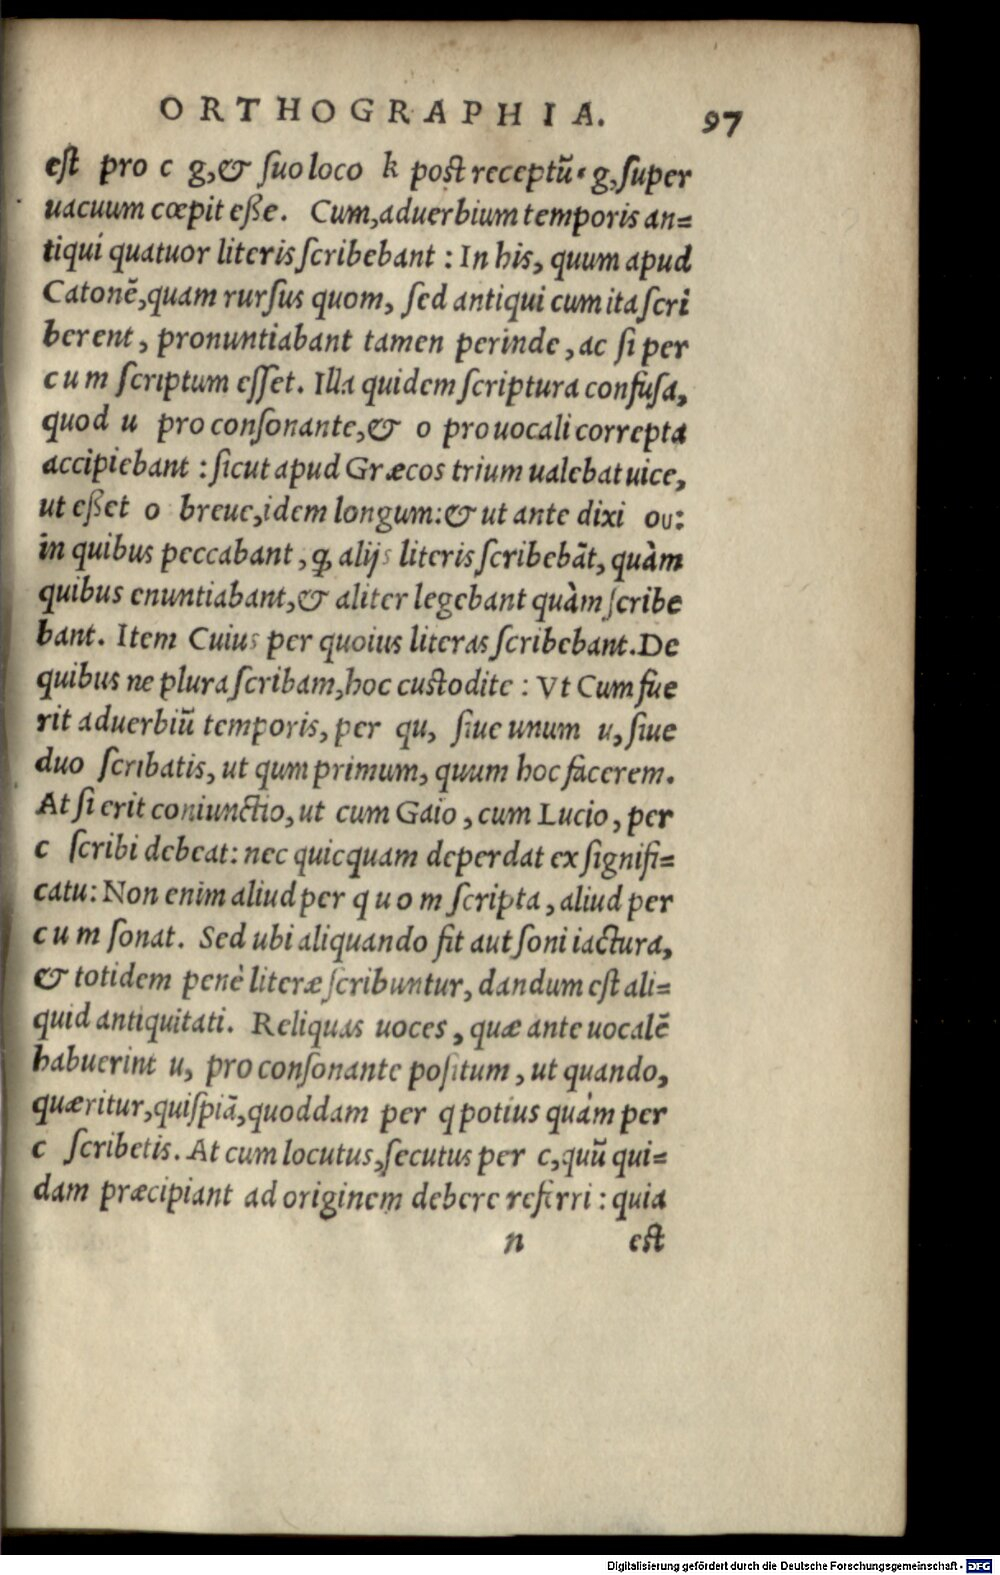 ORTHOGRAPHIA. 97
est pro c g,& ſuo loco k post receptũ g, ſuper
uacuum cœpit eße. Cum, aduerbium temporis an=
tiqui quatuor literis ſcribebant : In his, quum apud
Catonẽ, quam rurſus quom, ſed antiqui cum ita ſcri
berent, pronuntiabant tamen perinde, ac ſi per
c u m ſcriptum eſſet. Illa quidem ſcriptura confuſa,
quod u pro conſonante, & o pro uocali correpta
accipiebant : ſicut apud Græcos trium ualebat uice,
ut eßet o breue, idem longum: & ut ante dixi ου:
in quibus peccabant, ꝙ alijs literis ſcribebãt, quàm
quibus enuntiabant, & aliter legebant quàm ſcribe
bant. Item Cuius per quoius literas ſcribebant. De
quibus ne plura ſcribam, hoc custodite : Vt Cum fue
rit aduerbiũ temporis, per qu, ſiue unum u, ſiue
duo ſcribatis, ut qum primum, quum hoc facerem.
At ſi erit coniunctio, ut cum Gaio, cum Lucio, per
c ſcribi debeat: nec quicquam deperdat ex ſignifi=
catu: Non enim aliud per q u o m ſcripta, aliud per
c u m ſonat. Sed ubi aliquando fit aut ſoni iactura,
& totidem penè literæ ſcribuntur, dandum est ali=
quid antiquitati. Reliquas uoces, quæ ante uocalẽ
habuerint u, pro conſonante poſitum, ut quando,
quæritur, quiſpiã, quoddam per q potius quàm per
c ſcribetis. At cum locutus, ſecutus per c, quũ qui=
dam præcipiant ad originem debere referri : quia
n est
Digitalisierung gefördert durch die Deutsche Forschungsgemeinschaft - DFG